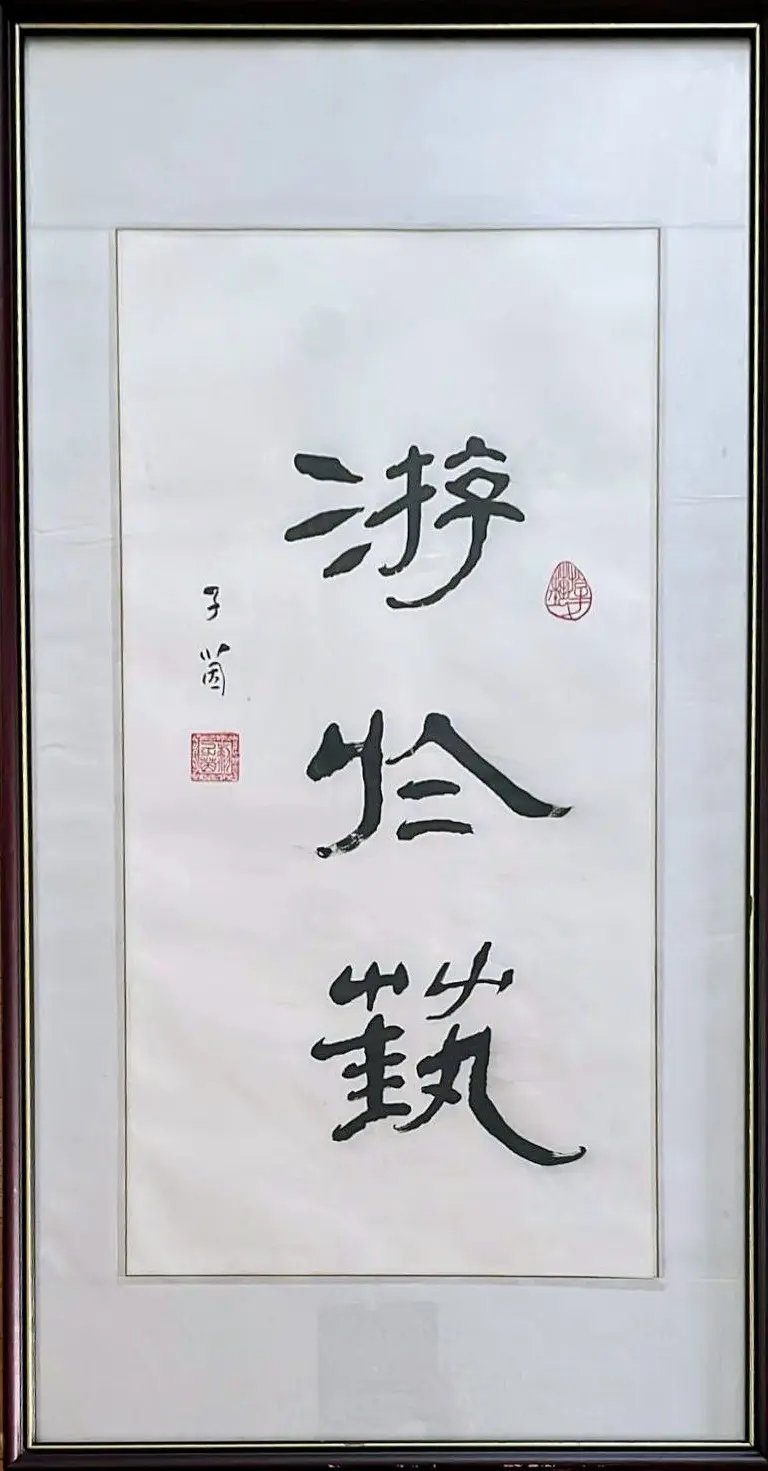 游於藝
子茵